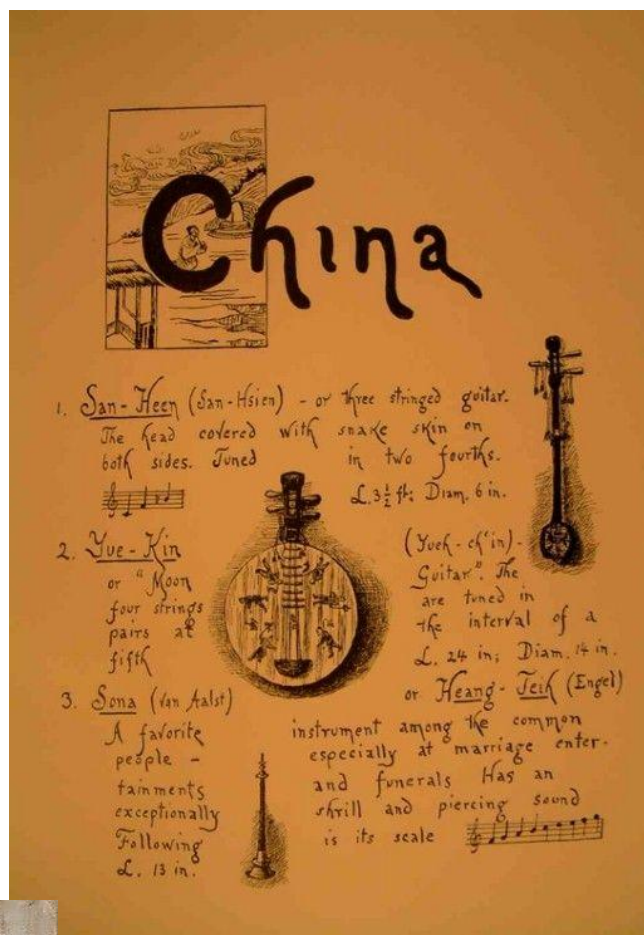 China
1. San-Heen (San-Hsien) - or three stringed guitar.
The head covered with snake skin on
both sides. Tuned in two fourths.
L. 3 1/2 ft; Diam. 6 in.
2. Yue-Kin (Yueh-ch'in) -
or "Moon Guitar". The
four strings are tuned in
pairs at the interval of a
fifth L. 24 in; Diam. 14 in.
3. Sona (Van Aalst) or Heang-Teih (Engel)
A favorite instrument among the common
people - especially at marriage enter-
tainments and funerals Has an
exceptionally shrill and piercing sound
Following is its scale
L. 13 in.